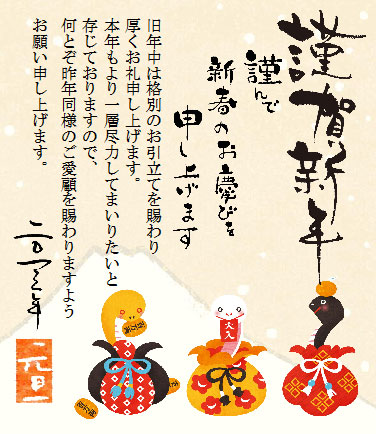 謹賀新年
謹んで
新春のお慶びを
申し上げます
旧年中は格別のお引立てを賜わり
厚くお礼申し上げます。
本年もより一層尽力してまいりたいと
存じておりますので、
何とぞ昨年同様のご愛顧を賜わりますよう
お願い申し上げます。
二〇一三年
元旦
大入